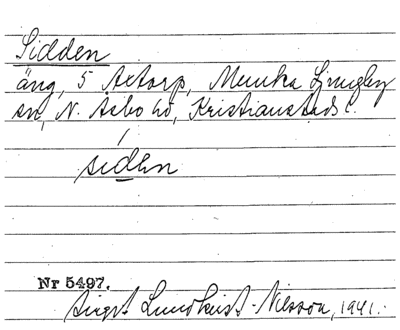 Sidden
äng, 5 Axtorp, Munka Ljungby
sn, N. Åsbo hd, Kristianstads l.
siden
Nr 5497.
Birgit Lundkvist-Nilsson, 1941.